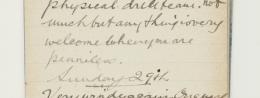 physical drill team. not
much but anything is very
welcome when you are
penniless.
Sunday 29th
Very windy again